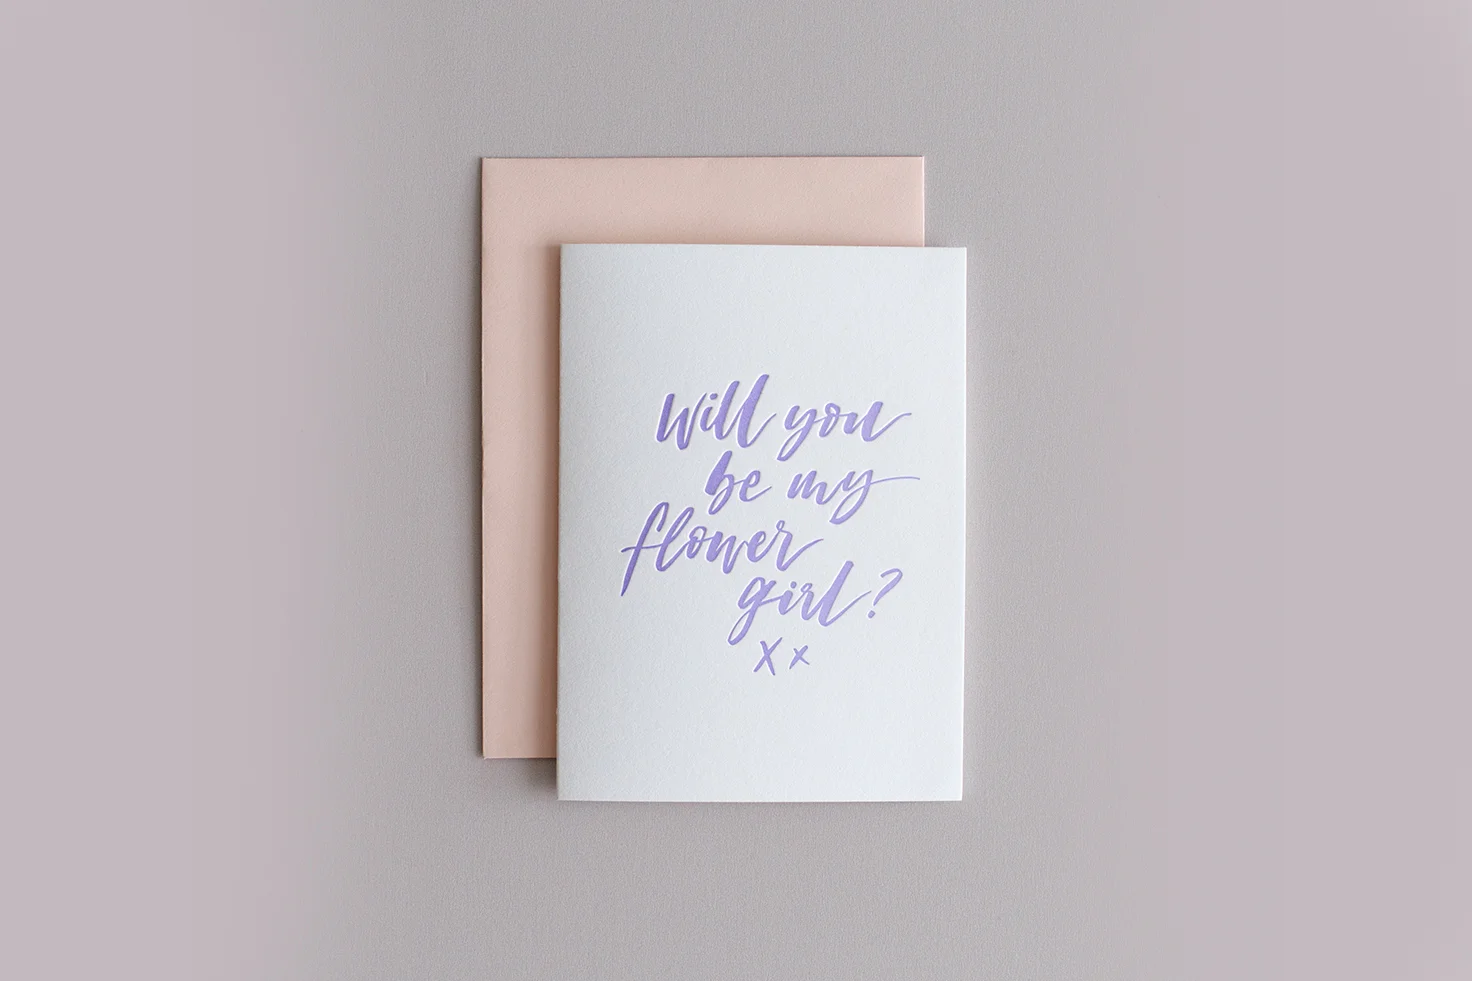 Will you
be my
flower
girl?
X x